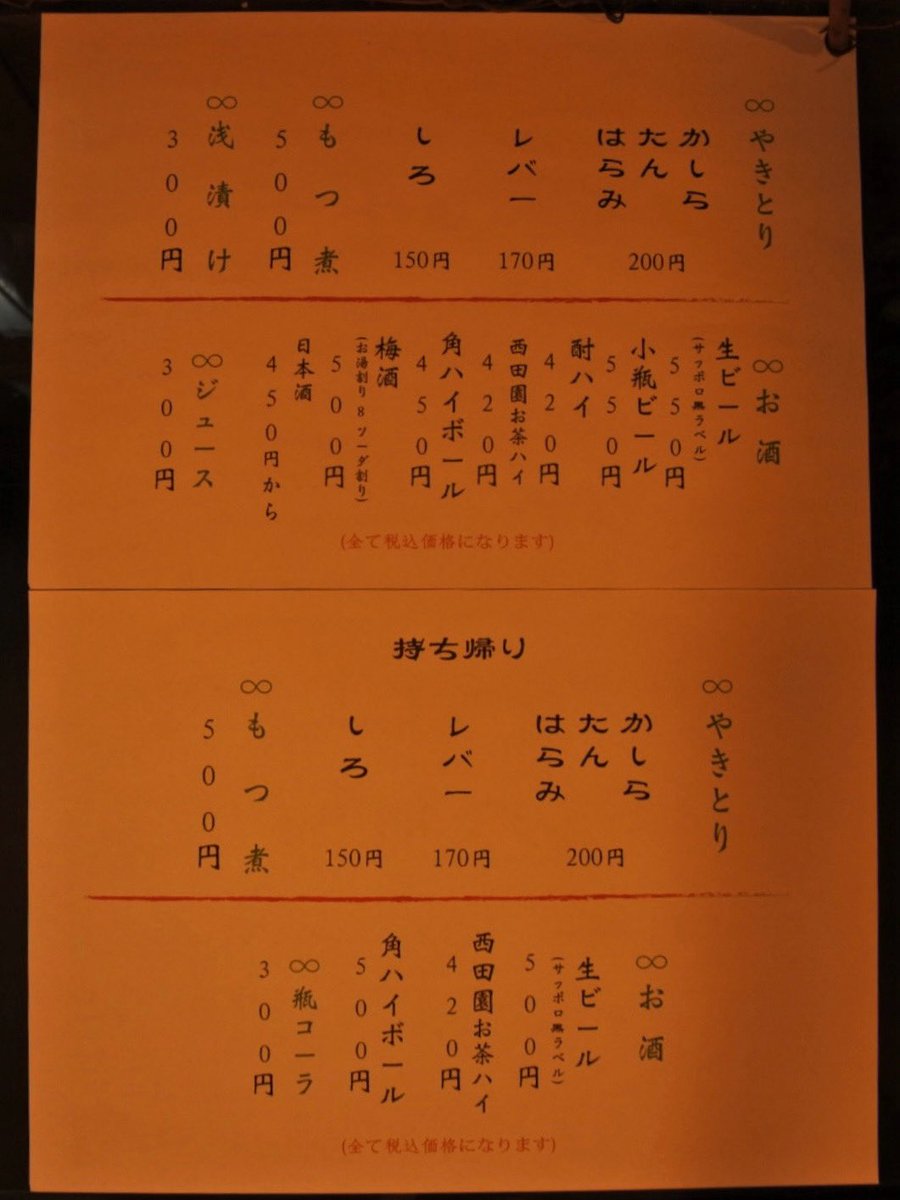 ∞やきとり
かしら
たん
はらみ
200円
レバー
170円
しろ
150円
∞もつ煮
500円
∞浅漬け
300円
∞お酒
生ビール
(サッポロ黒ラベル)
550円
小瓶ビール
550円
酎ハイ
420円
西田園お茶ハイ
420円
角ハイボール
450円
梅酒
(お湯割り&ソーダ割り)
500円
日本酒
450円から
∞ジュース
300円
(全て税込価格になります)
持ち帰り
∞やきとり
かしら
たん
はらみ
200円
レバー
170円
しろ
150円
∞もつ煮
500円
∞お酒
生ビール
(サッポロ黒ラベル)
500円
西田園お茶ハイ
420円
角ハイボール
500円
∞瓶コーラ
300円
(全て税込価格になります)